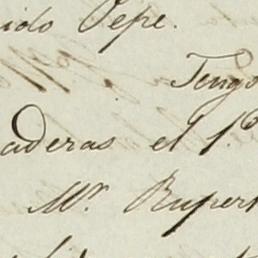 ido Pepe.
Tengo
aderas el 1.º
Mr. Rupert